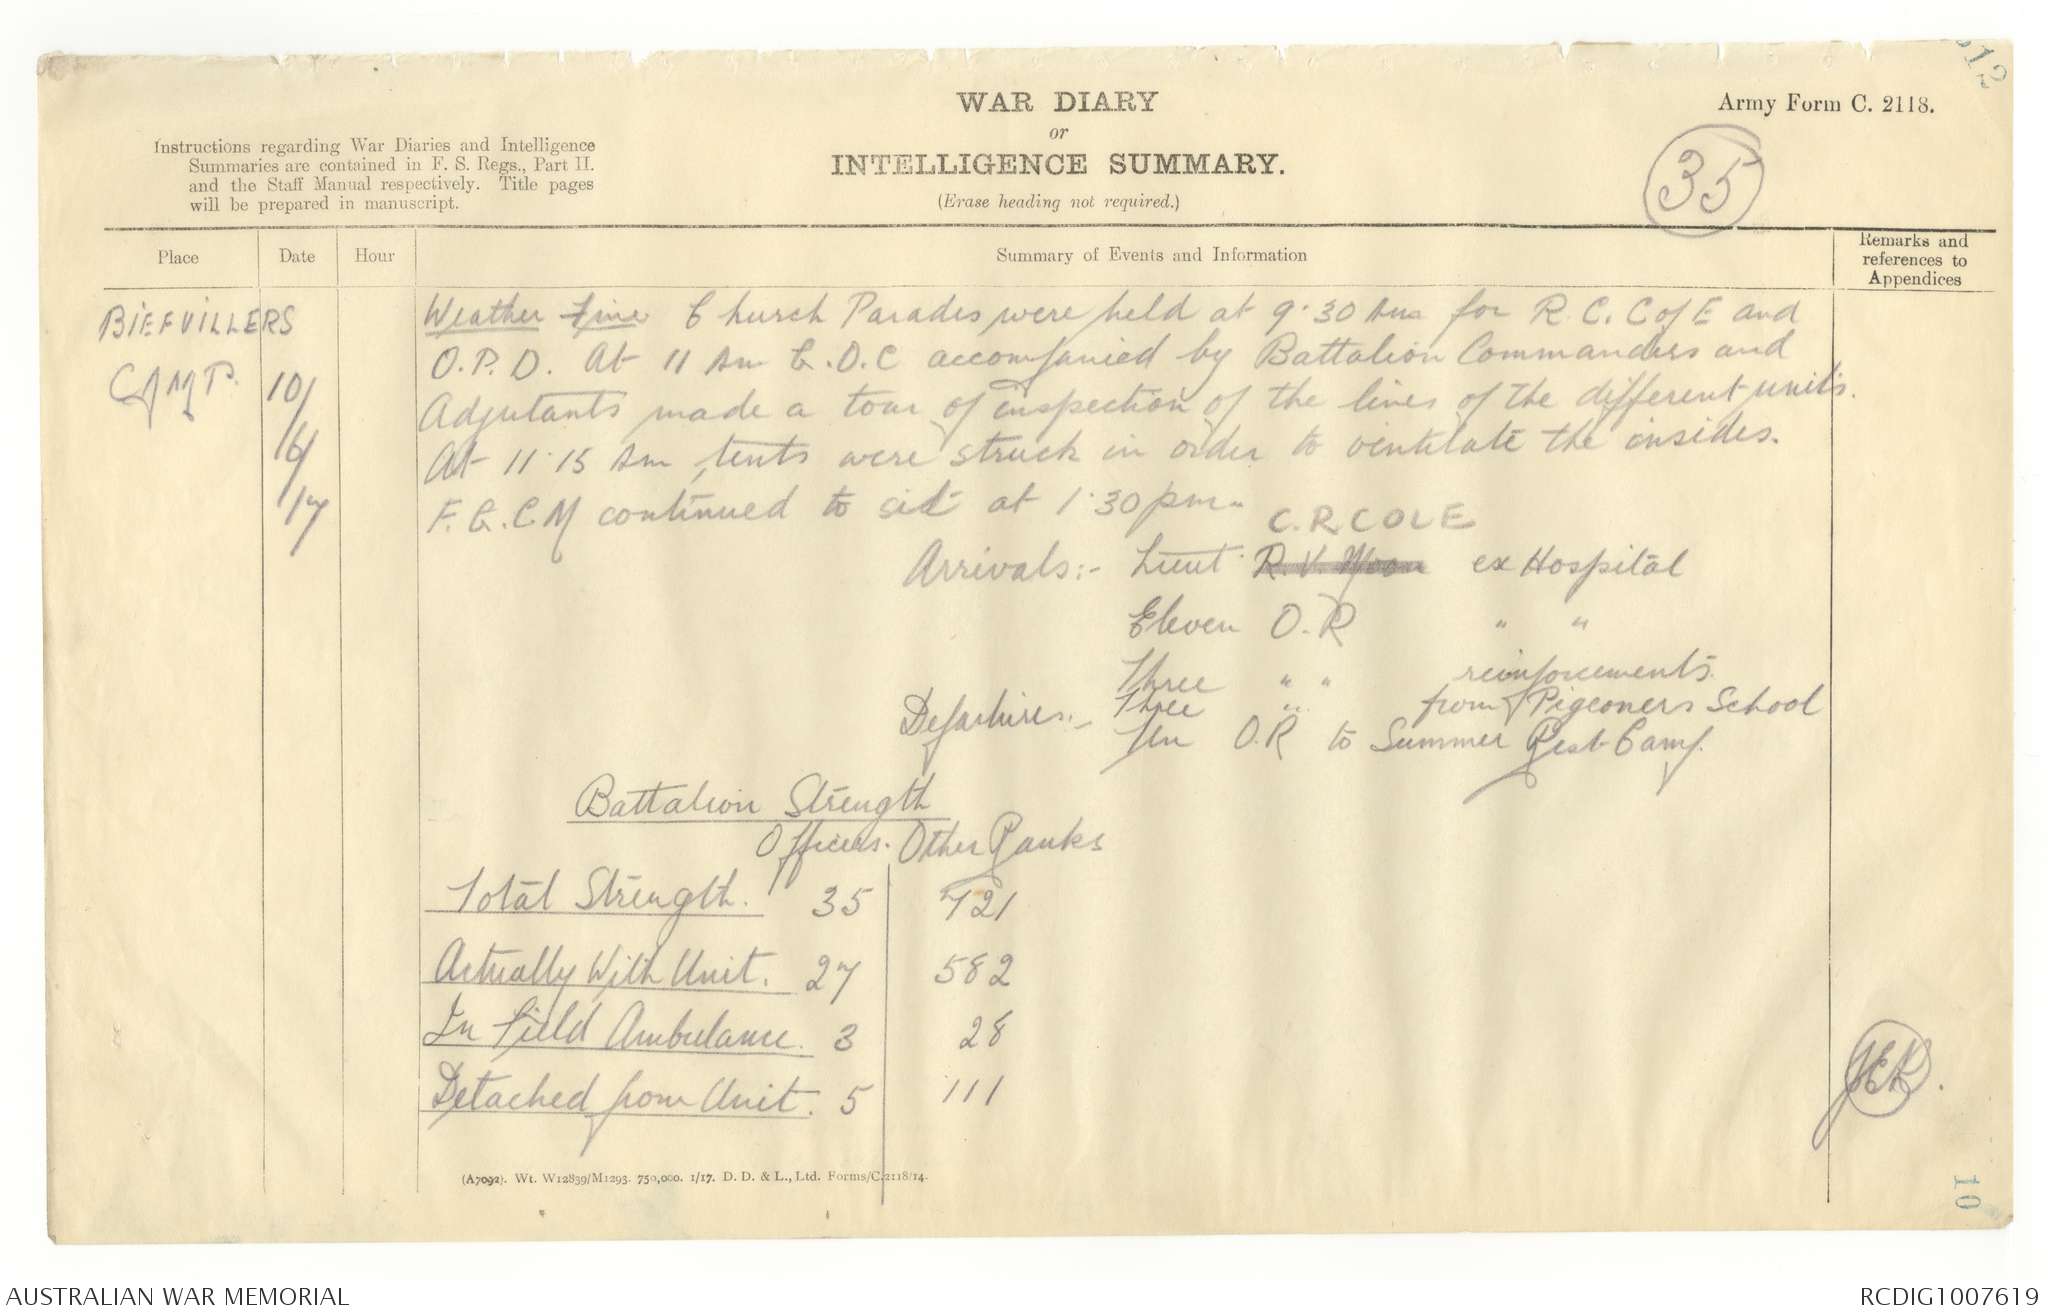 WAR DIARY
or
INTELLIGENCE SUMMARY.
(Erase heading not required.)
Army Form C. 2118.
35
Instructions regarding War Diaries and Intelligence
Summaries are contained in F. S. Regs., Part II.
and the Staff Manual respectively. Title pages
will be prepared in manuscript.
Place Date Hour Summary of Events and Information Remarks and references to Appendices
BIEFVILLERS
CAMP. 10/
6/
17
Weather Fine Church Parades were held at 9.30 Am for R.C. C of E and
O.P.D. At 11 Am G.O.C accompanied by Battalion Commanders and
Adjutants made a tour of inspection of the lines of the different units.
At 11.15 Am, tents were struck in order to ventilate the insides.
F.G.C.M continued to sit at 1.30 pm.
C.R. COLE
Arrivals:- Lieut. R.V. Moon ex Hospital
Eleven O.R " "
Three " " reinforcements.
Three " " from Pigeoners School
Departures:- Ten O.R to Summer Rest Camp.
Battalion Strength
Officers. Other Ranks
Total Strength. 35 721
Actually With Unit. 27 582
In Field Ambulance. 3 28
Detached from Unit. 5 111
JEK.
(A7092). Wt. W12839/M1293. 750,000. 1/17. D. D. & L., Ltd. Forms/C.2118/14.
10
AUSTRALIAN WAR MEMORIAL
RCDIG1007619